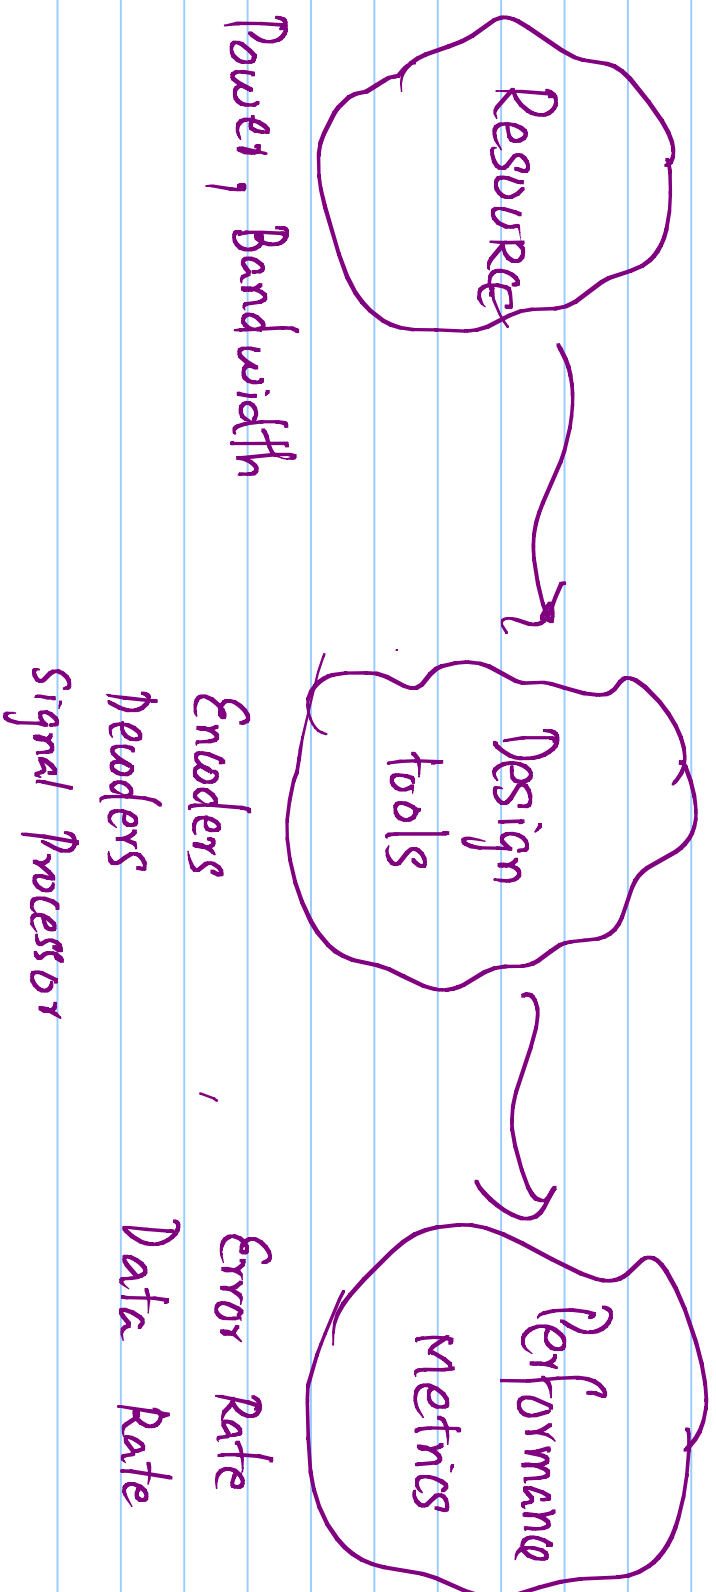 Resource
Power, Bandwidth
Design
tools
Encoders
Decoders
Signal Processor
Performance
Metrics
Error Rate
Data Rate